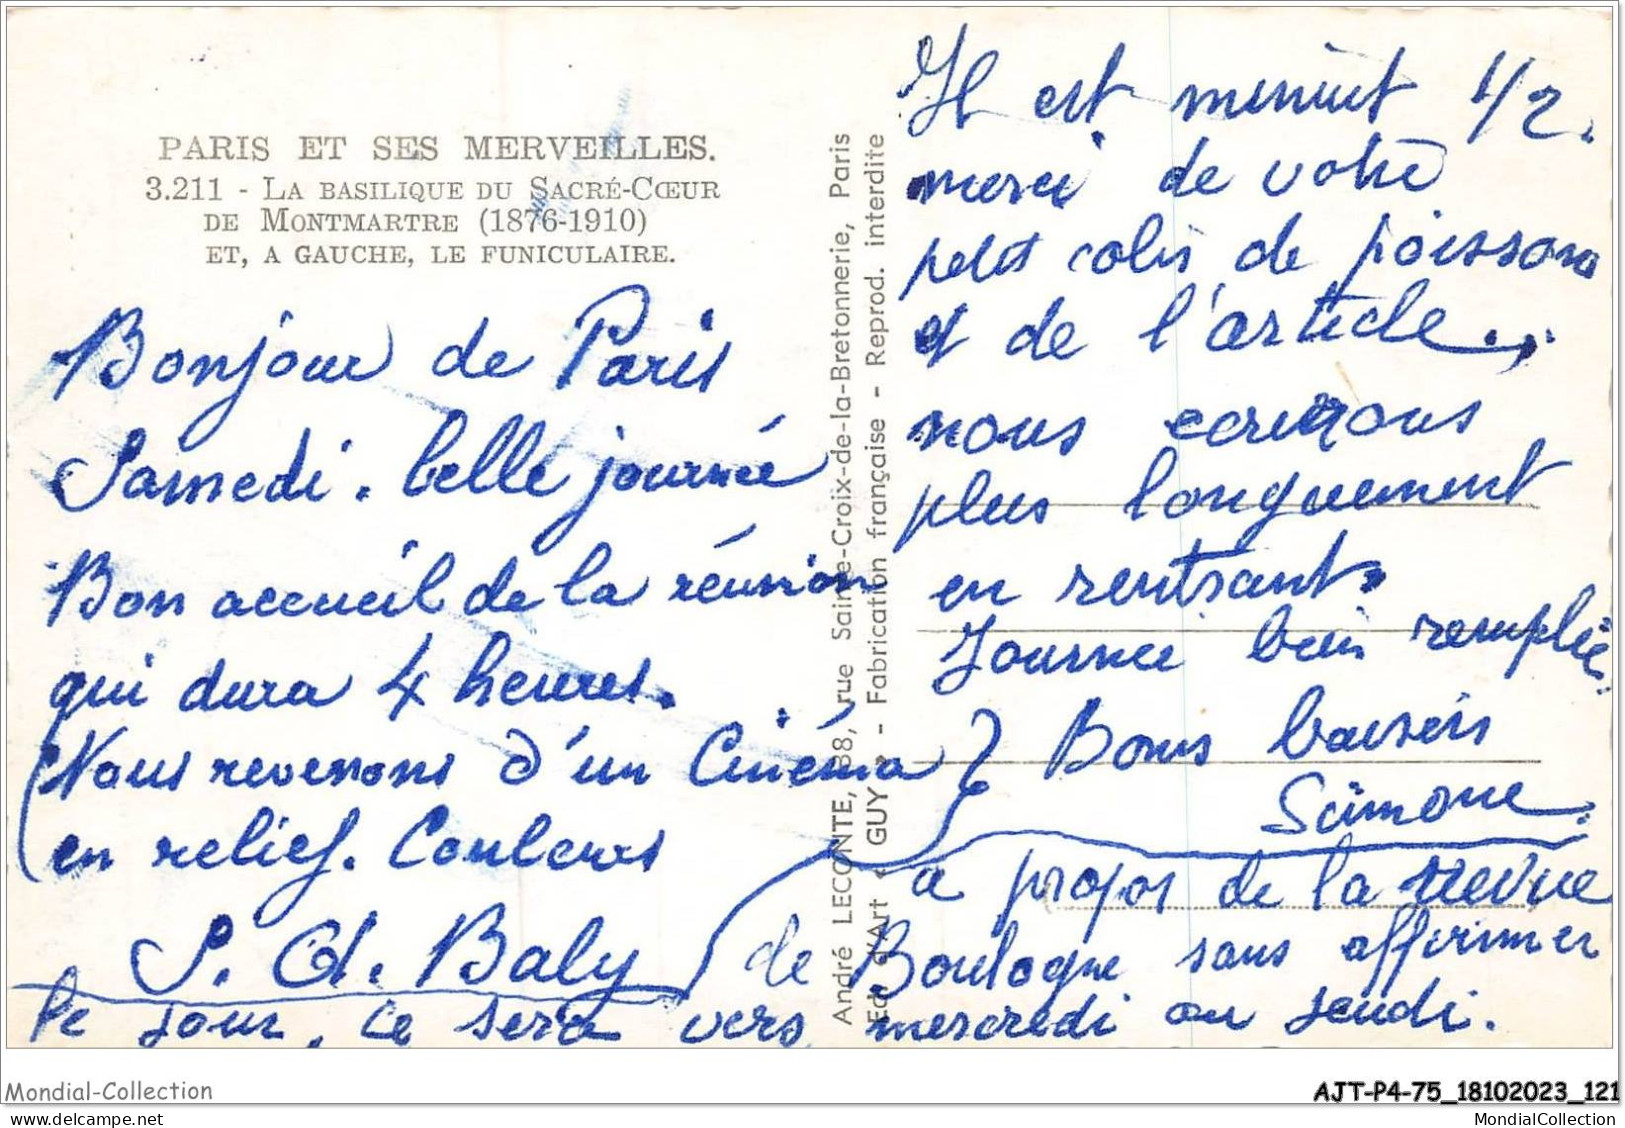 PARIS ET SES MERVEILLES.
3.211 - LA BASILIQUE DU SACRÉ-CŒUR
DE MONTMARTRE (1876-1910)
ET, A GAUCHE, LE FUNICULAIRE.
Bonjour de Paris
Samedi. belle journée
Bon accueil de la réunion
qui dura 4 heures.
Nous revenons d'un Cinéma
en relief. Couleurs
Baly
André LECONTE, 38, rue Sainte-Croix-de-la-Bretonnerie, Paris
Ed. d'Art "GUY" - Fabrication française - Reprod. interdite
Il est minuit 1/2.
merci de votre
petit colis de poissons
et de l'article..
nous ecrirons
plus longuement
en rentrant.
Journée bien remplie.
Bons baisers
Simone.
a propos de la revue
de Boulogne sans affirmer
le jour, ce sera vers mercredi ou jeudi.
Mondial-Collection
AJT-P4-75_18102023_121
MondialCollection